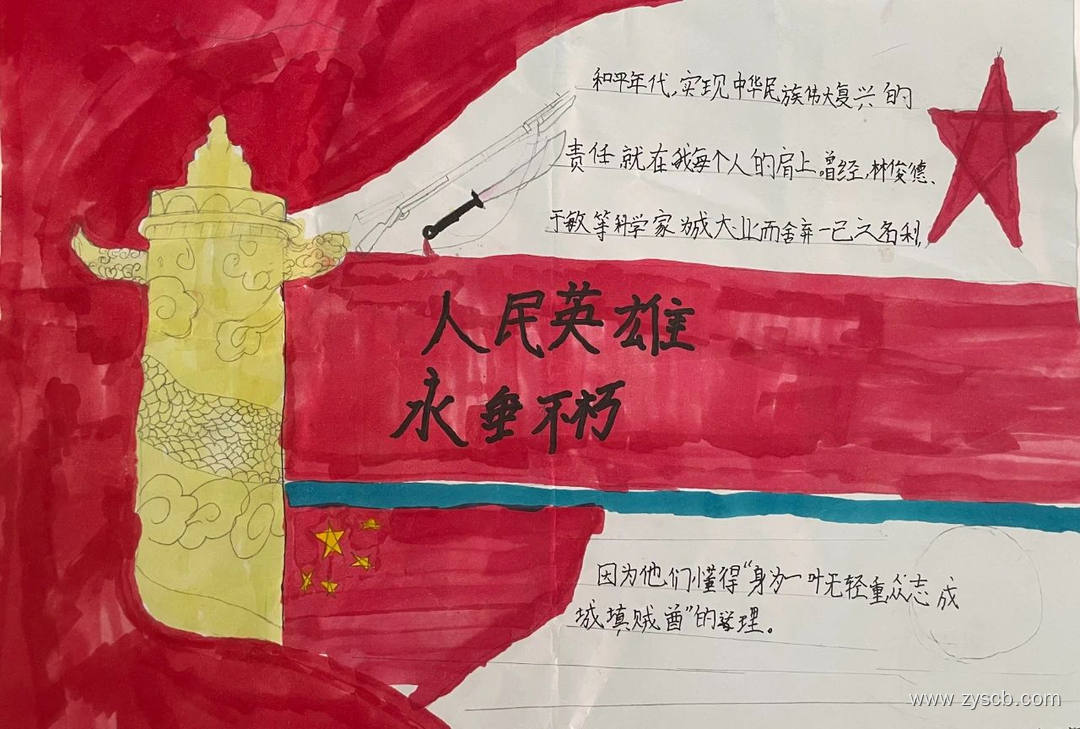 和平年代,实现中华民族伟大复兴的
责任,就在我每个人的肩上。曾经,林俊德、
于敏等科学家为成大业而舍弃一己之名利,
人民英雄
永垂不朽
因为他们懂得“身为一叶无轻重众志成
城填贼酋”的道理。
www.zyscb.com